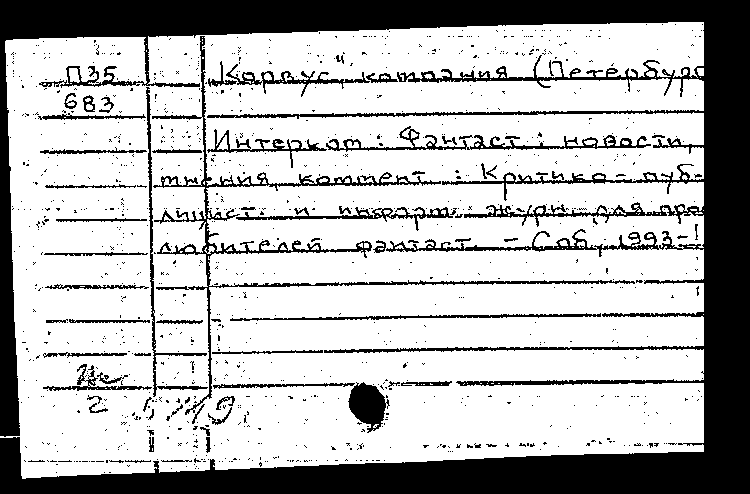 П35
683
Корвус", компания (Петербург
Интерком : Фантаст : новости,
мнения, коммент : Критико-пуб-
лицист. и информ. журн. для про
любителей фантаст. - Спб, 1993-
2